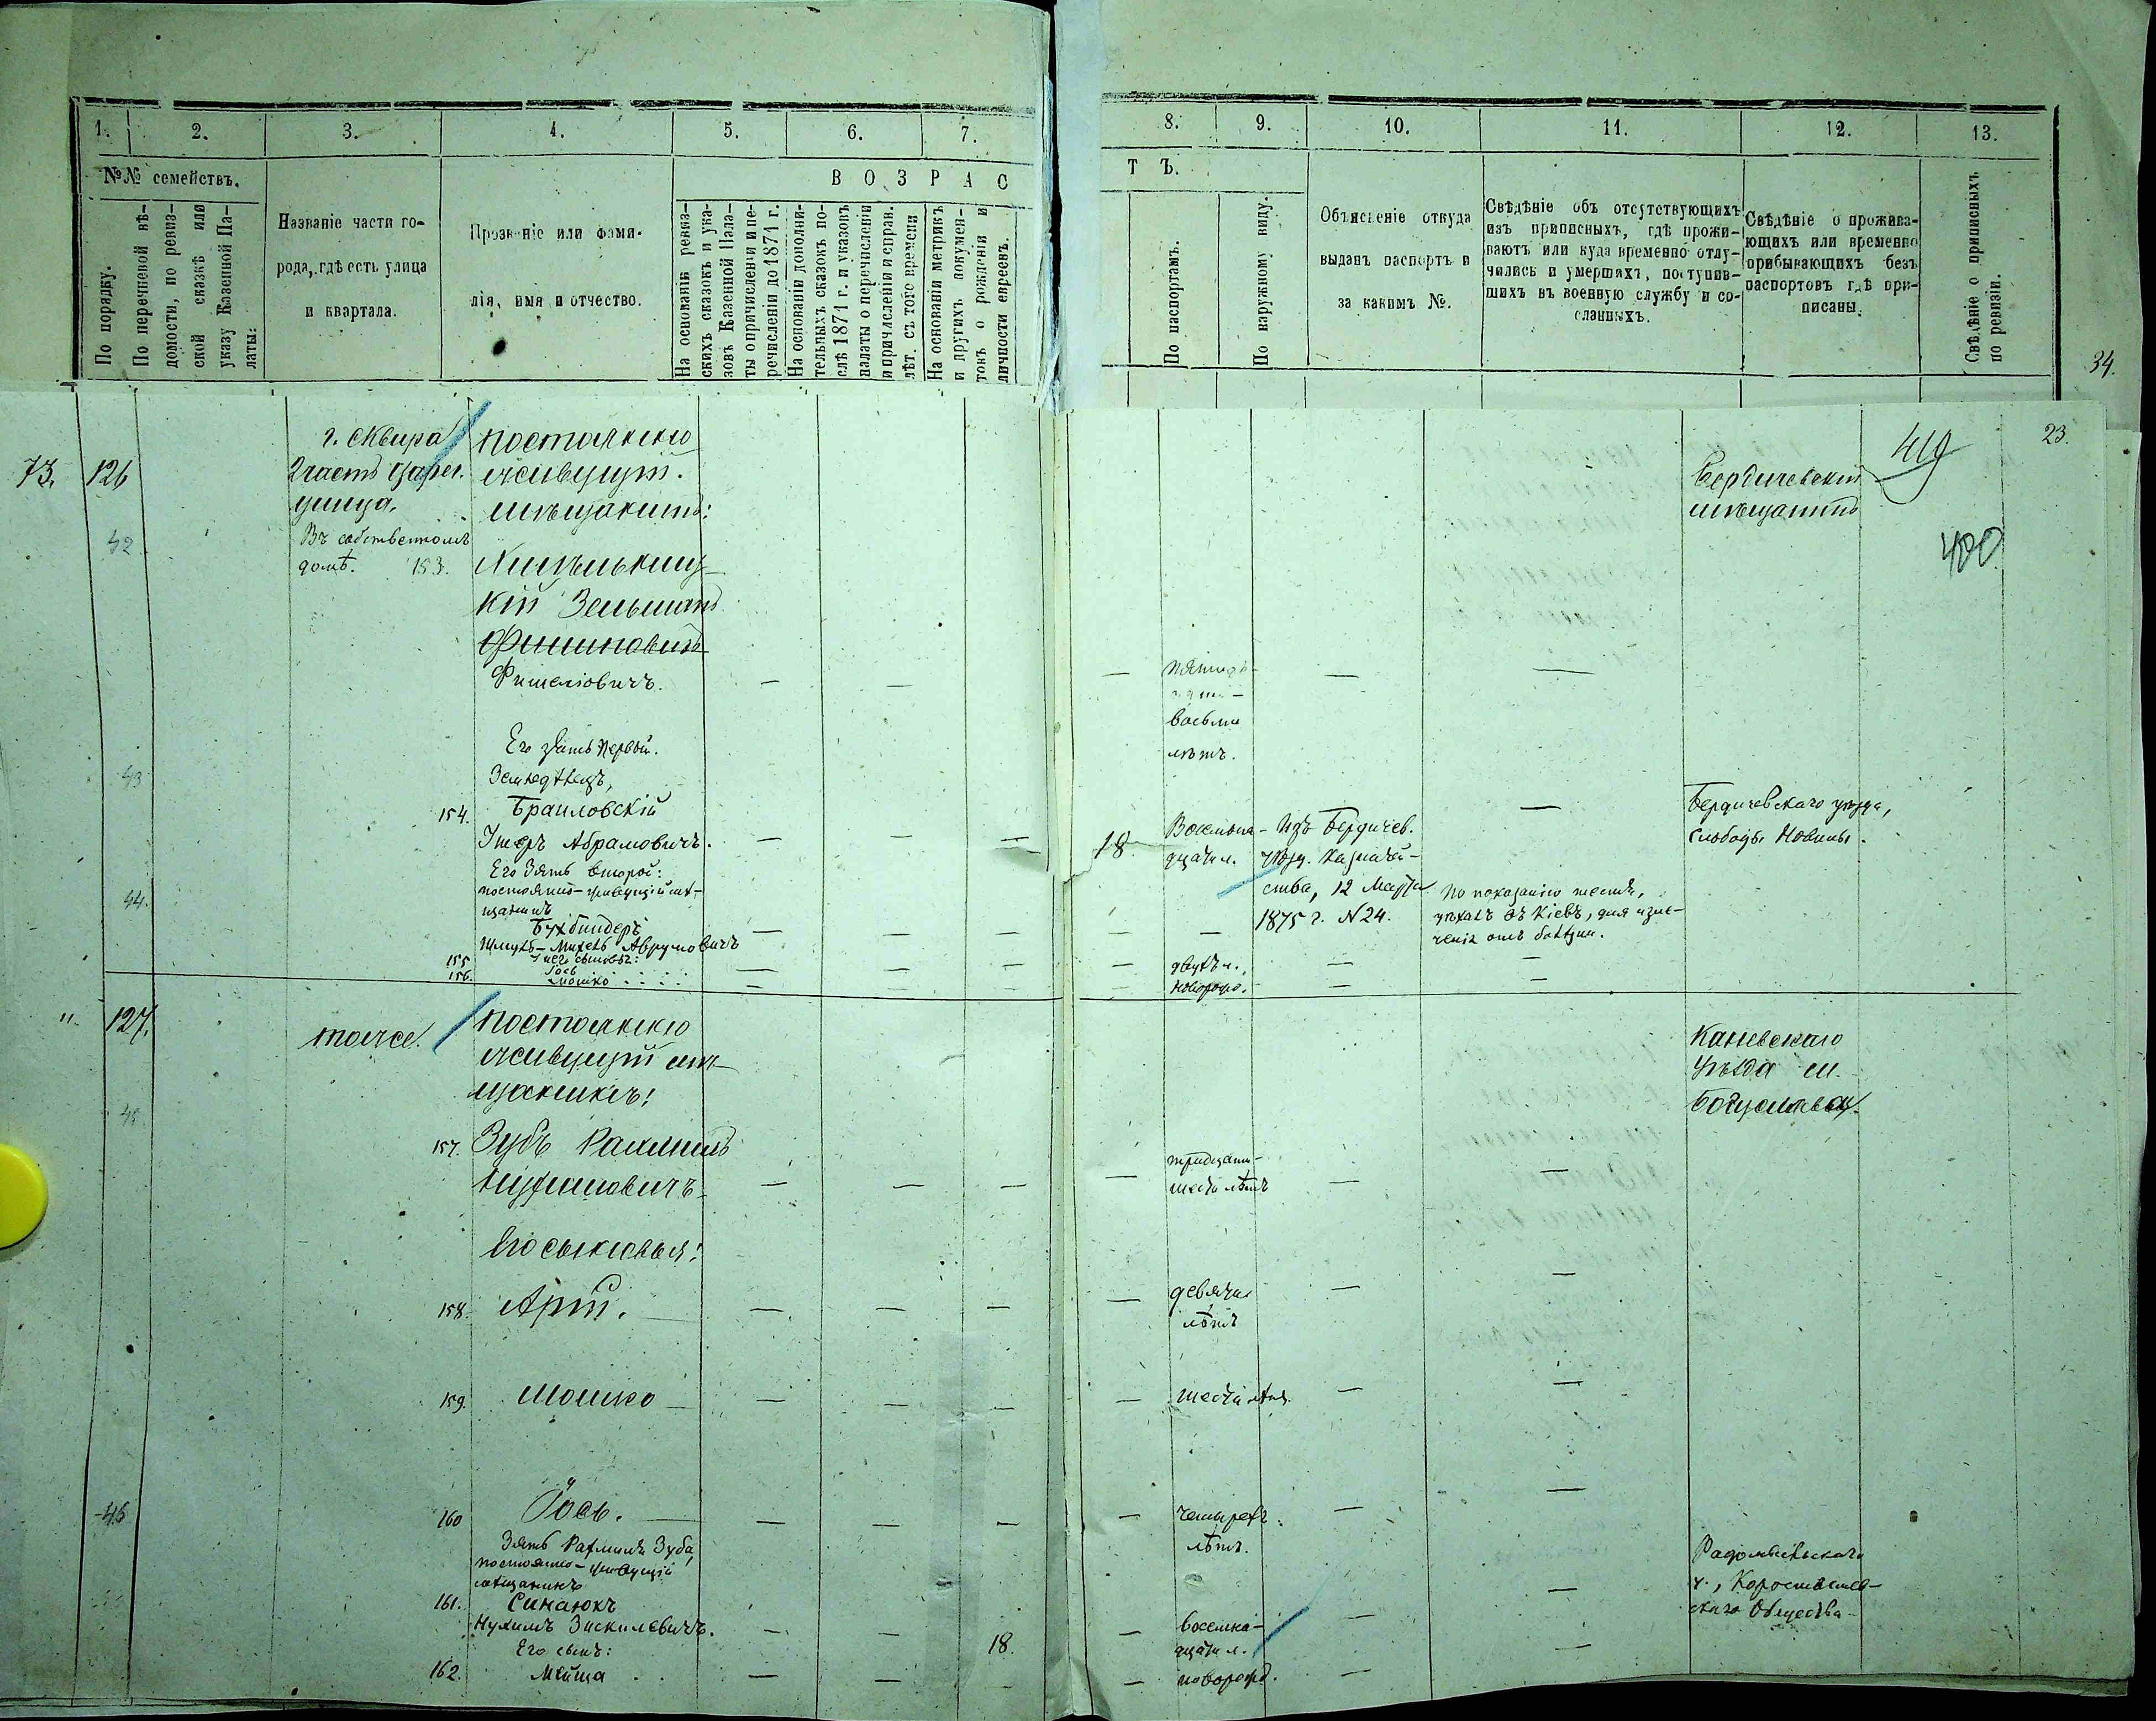 1.
2.
3.
4.
5.
6.
7.
8.
9.
10.
11.
12.
13.
№№ семействъ.
По порядку.
По перечневой вѣ-
домости, по ревиз-
ской сказкѣ или
указу Казенной Па-
латы:
Названіе части го-
рода, гдѣ есть улица
и квартала.
Прозваніе или фами-
лія, имя и отчество.
В О З Р А С
Т Ъ.
На основаніи ревиз-
скихъ сказокъ и ука-
зовъ Казенной Пала-
ты о причисленіи и пе-
речисленіи до 1874 г.
На основаніи дополни-
тельныхъ сказокъ по-
слѣ 1874 г. и указовъ
палаты о перечисленіи
и причисленіи и справ.
лѣт. съ того времени
На основаніи метрикъ
и другихъ докумен-
товъ о рожденіи и
личности евреевъ.
По паспортамъ.
По наружному виду.
Объясненіе откуда
выданъ паспортъ и
за какимъ №.
Свѣдѣніе объ отсутствующихъ
изъ приписныхъ, гдѣ прожи-
ваютъ или куда временно отлу-
чились и умершихъ, поступив-
шихъ въ военную службу и со-
сланныхъ.
Свѣдѣніе о прожива-
ющихъ или временно
прибывающихъ безъ
паспортовъ гдѣ при-
писаны.
Свѣдѣніе о приписныхъ
по ревизіи.
34.
23.
419
400
73. 126
42
г. Сквира
2 часть
улица.
Въ собственномъ
домѣ. 153.
постоянно
живущій
мѣщанинъ:
кій Зельманъ
Фишелiовичъ.
пятиде-
восьми
лѣтъ.
Бердичевскій
мѣщанинъ
43
Его зять первый.
Земледѣлецъ,
154. Браиловскій
Абрамовичъ.
18
Восемна-
дцати л.
Изъ Бердичев.
уѣзд. Казначей-
ства, 12 Марта
1875 г. N 24.
Бердичевскаго уѣзда,
слободы Новины.
44.
Его Зять второй:
постоянно-живущій мѣ-
щанинъ
Бухбиндеръ
Аврумовичъ
По показанію тестя,
уѣхалъ въ Кіевъ, для излѣ-
ченія отъ болѣзни.
155 У него сыновья:
Іось
156. Мошко
двухъ л.
новорожд.
". 127.
45
тоже.
постоянно
живущій мѣ-
щанинъ:
157. Зубъ Рахмиль
Нухимовичъ
тридцати-
шести лѣтъ
Каневскаго
уѣзда м.
Богуслава.
Его сыновья:
158. Арій.
девяти
лѣтъ
159. Мошко
шести лѣтъ.
46
160 Іось.
четырехъ
лѣтъ.
Зять Рахмиля Зуба,
постоянно-живущій
мѣщанинъ
161. Синаюкъ
Нухимъ Зискилевичъ.
18.
восемна-
дцати л.
Радомысльскаго
у., Коростышев-
скаго Общества
Его сынъ:
162. Мейша
новорожд.